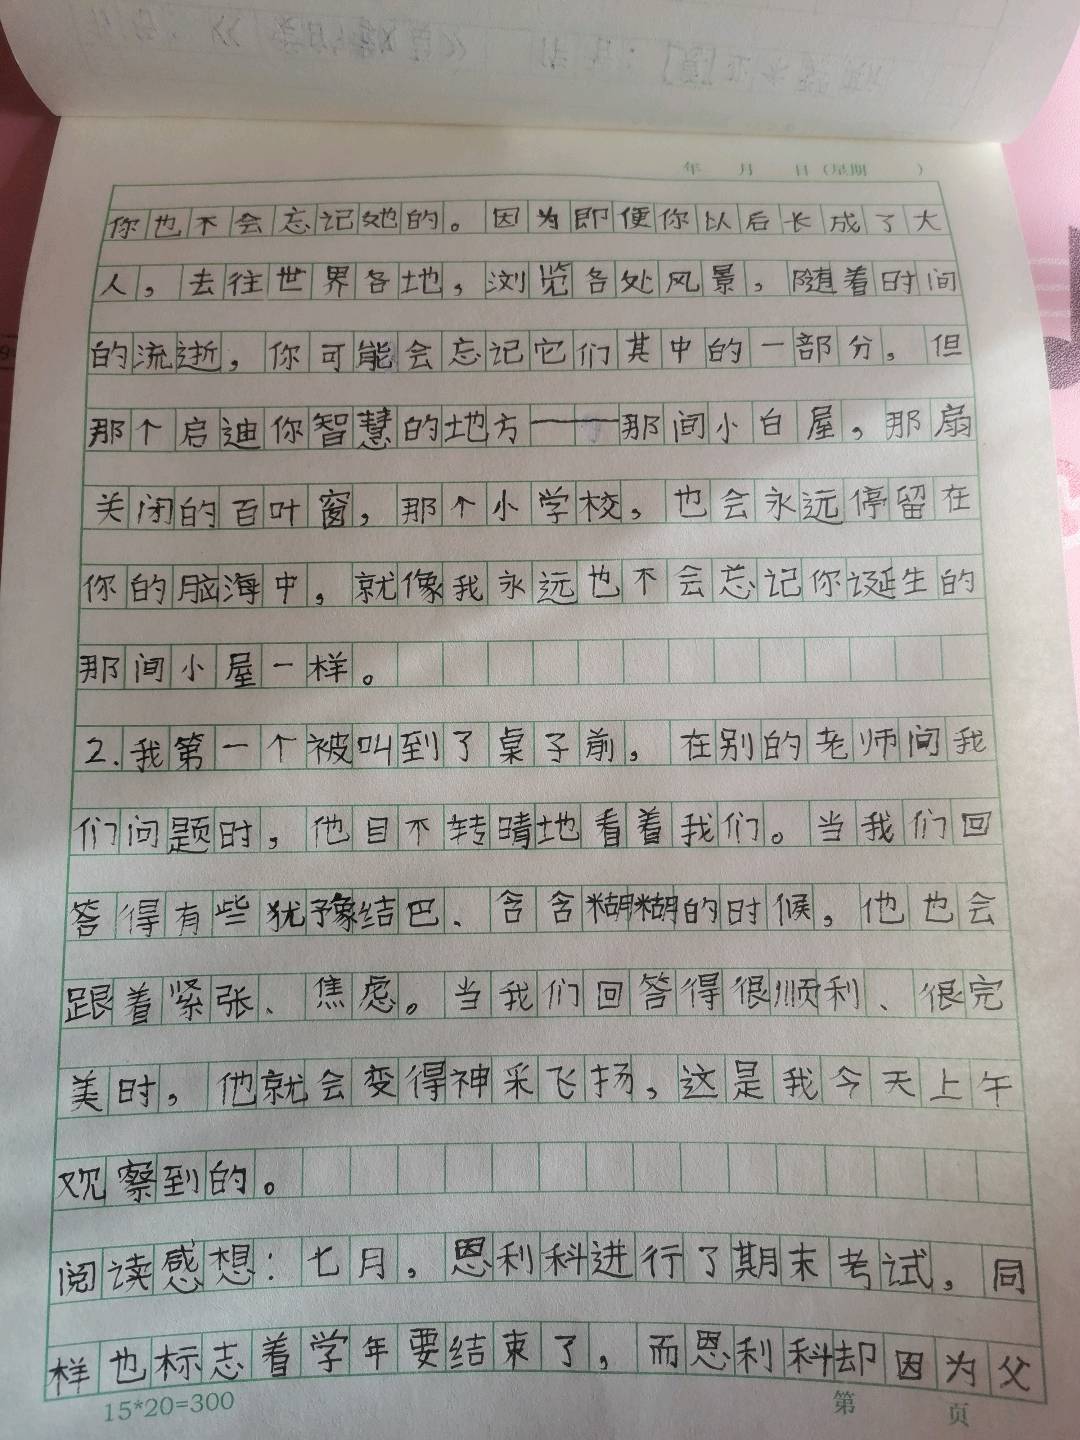 年 月 日（星期 ）
你也不会忘记她的。因为即便你以后长成了大
人，去往世界各地，浏览各处风景，随着时间
的流逝，你可能会忘记它们其中的一部分。但
那个启迪你智慧的地方——那间小白屋，那扇
关闭的百叶窗，那个小学校，也会永远停留在
你的脑海中，就像我永远也不会忘记你诞生的
那间小屋一样。
2.我第一个被叫到了桌子前，在别的老师问我
们问题时，他目不转睛地看着我们。当我们回
答得有些犹豫结巴、含含糊糊的时候，他也会
跟着紧张、焦虑。当我们回答得很顺利、很完
美时，他就会变得神采飞扬，这是我今天上午
观察到的。
阅读感想：七月，恩利科进行了期末考试，同
样也标志着学年要结束了，而恩利科却因为父
15*20=300 第 页